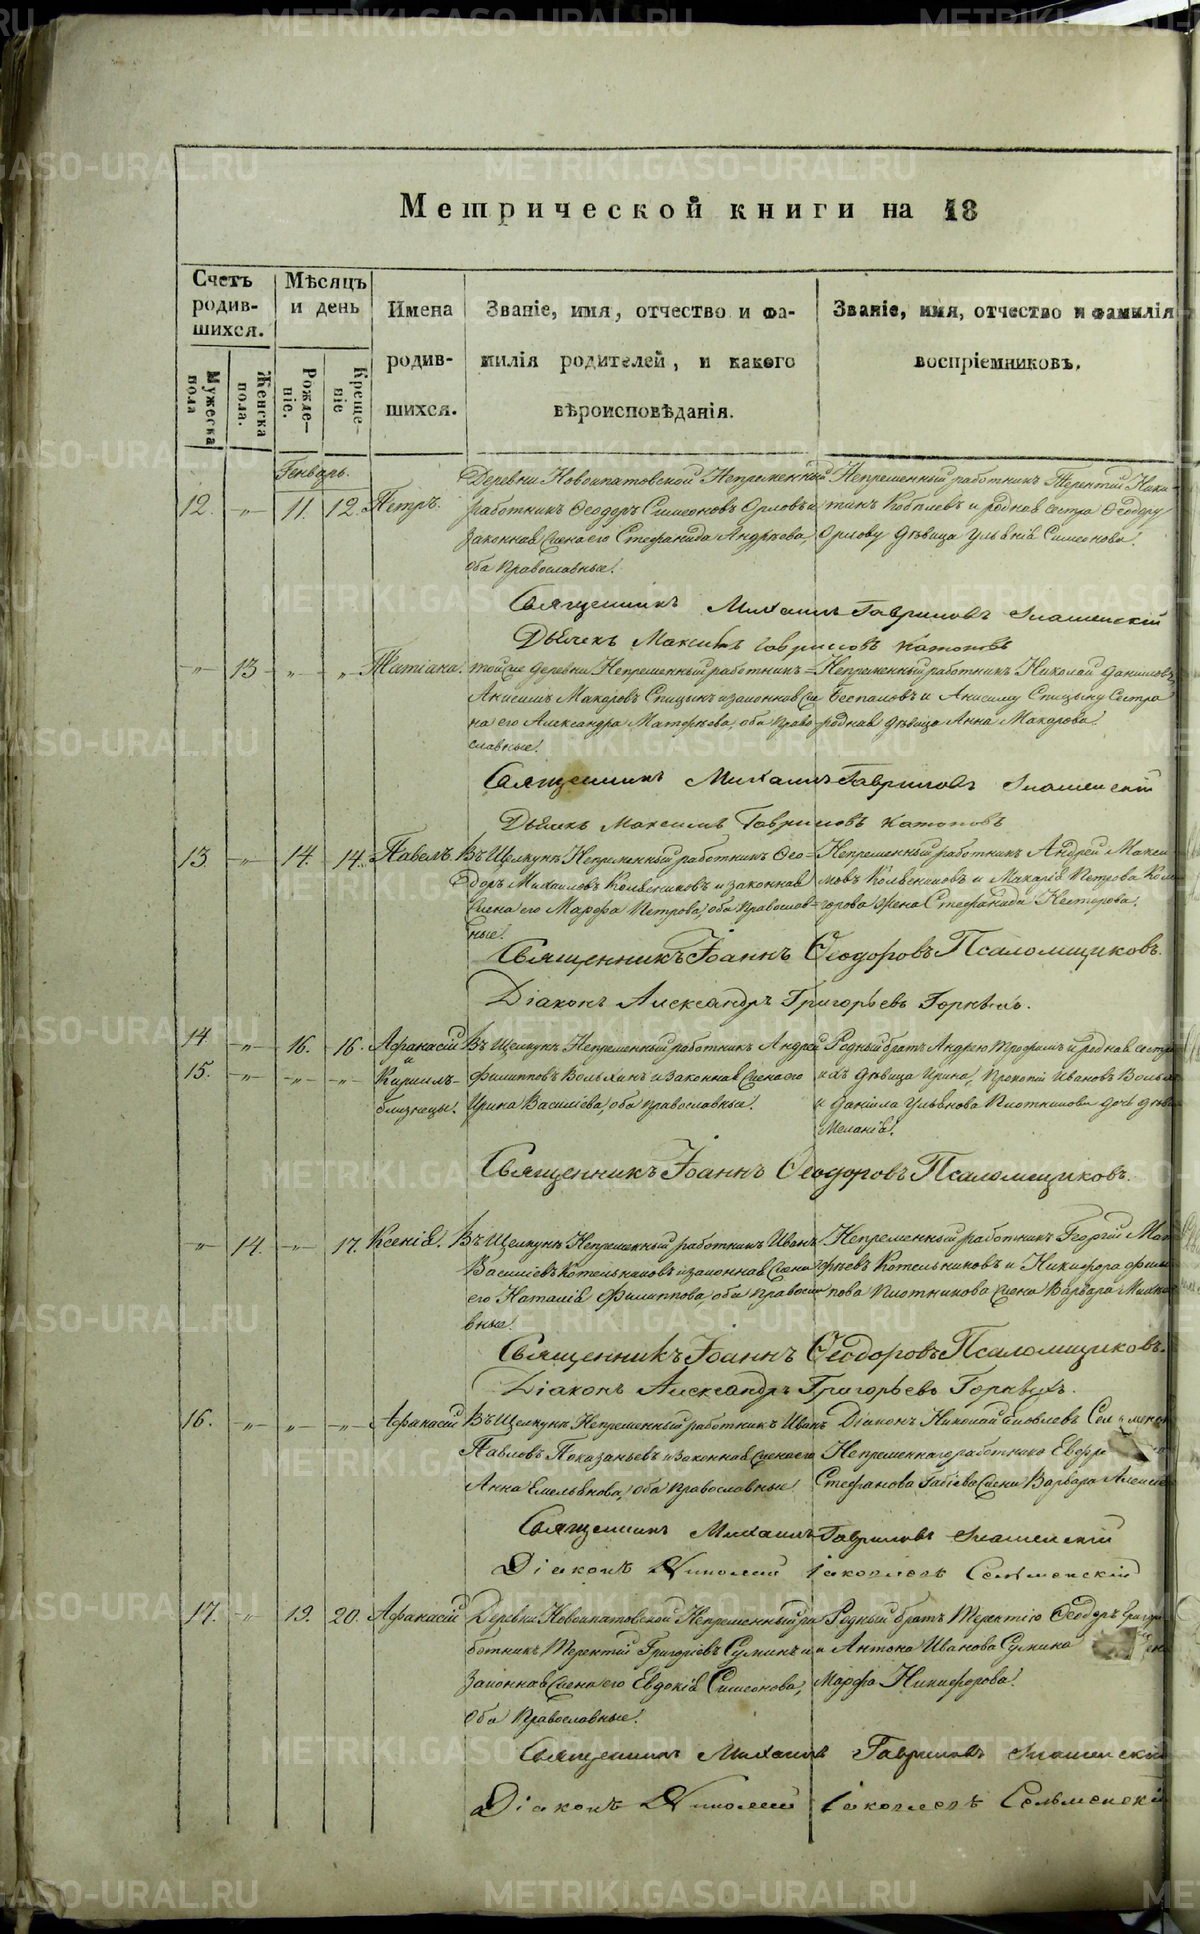 Метрической книги на 18
Счетъ родив-шихся.
Мѣсяцъ и день
Имена родив-шихся.
Званіе, имя, отчество и фа-милія родителей, и какого вѣроисповѣданія.
Званіе, имя, отчество и фамилія воспріемниковъ.
Мужеска пола
Женска пола.
Рожде-ніе.
Креще-ніе
Генварь.
12. -„- 11. 12. Петръ.
Деревни Новоипатовской Непременный
работникъ Ѳеодоръ Симеоновъ Орловъ и
законная жена его Стефанида Андрѣева,
оба православные.
Непременный работникъ Терентий Ники-
тинъ Кобелевъ и родная сестра Ѳеодору
Орлову дѣвица Ульянія Симеонова.
Священникъ Михаилъ Гавриловъ Знаменскій
Дьячекъ Максимъ Гавриловъ
-„- 13 -„- „ Татіана.
той же деревни Непременный работникъ
Анисимъ Макаровъ Спицынъ и законная же
на его Александра Матфѣева, оба право
славные.
Непременный работникъ Николай Даниловъ
Беспаловъ и Анисиму Спицыну сестра
родная дѣвица Анна Макарова.
Священникъ Михаилъ Гавриловъ Знаменскій
Дьячекъ Максимъ Гавриловъ
13. -„- 14. 14. Павелъ.
Въ Щелкунѣ Непременный работникъ Ѳео-
доръ Михаиловъ и законная
жена его Марфа Петрова, оба православ-
ные.
Непременный работникъ Андрей Макси
мовъ и Макарія Петрова
жена Стефанида Нестерова.
Священникъ Іоаннъ Ѳеодоровъ Псаломщиковъ.
Діаконъ Александръ Григорьевъ
14 -„- 16. 16. Афанасій
и
15. -„- -„- -„- Кириллъ-
близнецы.
Въ Щелкунѣ Непременный работникъ Андрей
Филипповъ и законная жена его
Ирина Василіева, оба православные.
Родный братъ Андрею Трофимъ и родная сестра
ихъ дѣвица Ирина, Прокопій Ивановъ
и Даніила Ульянова Плотникова дочь
Меланія.
Священникъ Іоаннъ Ѳеодоровъ Псаломщиковъ.
-„- 14. -„- 17. Ксенія.
Въ Щелкунѣ Непременный работникъ Иванъ
Василіевъ Котельниковъ и законная жена
его Наталія Филиппова, оба православ
вные.
Непременный работникъ Георгій Мат
фѣевъ Котельниковъ и Никифора Фили
пова Плотникова жена Варвара
Священникъ Іоаннъ Ѳеодоровъ Псаломщиковъ.
Діаконъ Александръ Григорьевъ
16. -„- „ -„- Афанасій
Въ Щелкунѣ Непременный работникъ Иванъ
Павловъ Показаньевъ и законная жена его
Анна Емельянова, оба православные
Діаконъ Николай Яковлевъ
Непременнаго работника
Стефанова жена Варвара
Священникъ Михаилъ Гавриловъ Знаменскій
Діаконъ Николай Іаковлевъ Сельменскій
17. -„- 19. 20. Афанасій
Деревни Новоипатовской Непременный ра
ботникъ Терентій Григорьевъ Сулкинъ и
законная жена его Евдокія Симеонова,
оба православные.
Родный братъ Терентію Ѳеодоръ
и Антона Иванова
Марфа Никифорова.
Священникъ Михаилъ Гавриловъ Знаменскій
Діаконъ Николай Іаковлевъ Сельменскій
METRIKI.GASO-URAL.RU